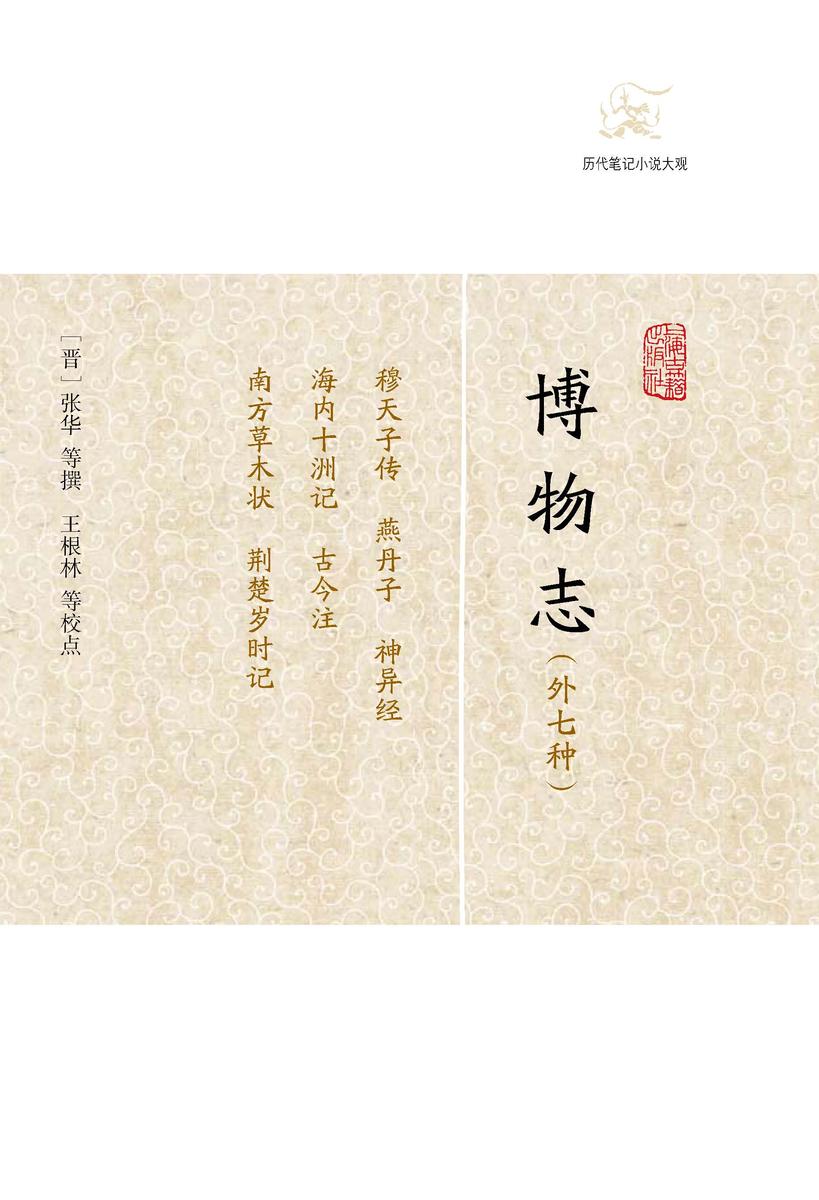 历代笔记小说大观
上海古籍出版社
博物志
（外七种）
穆天子传 燕丹子 神异经
海内十洲记 古今注
南方草木状 荆楚岁时记
［晋］张华 等撰 王根林 等校点